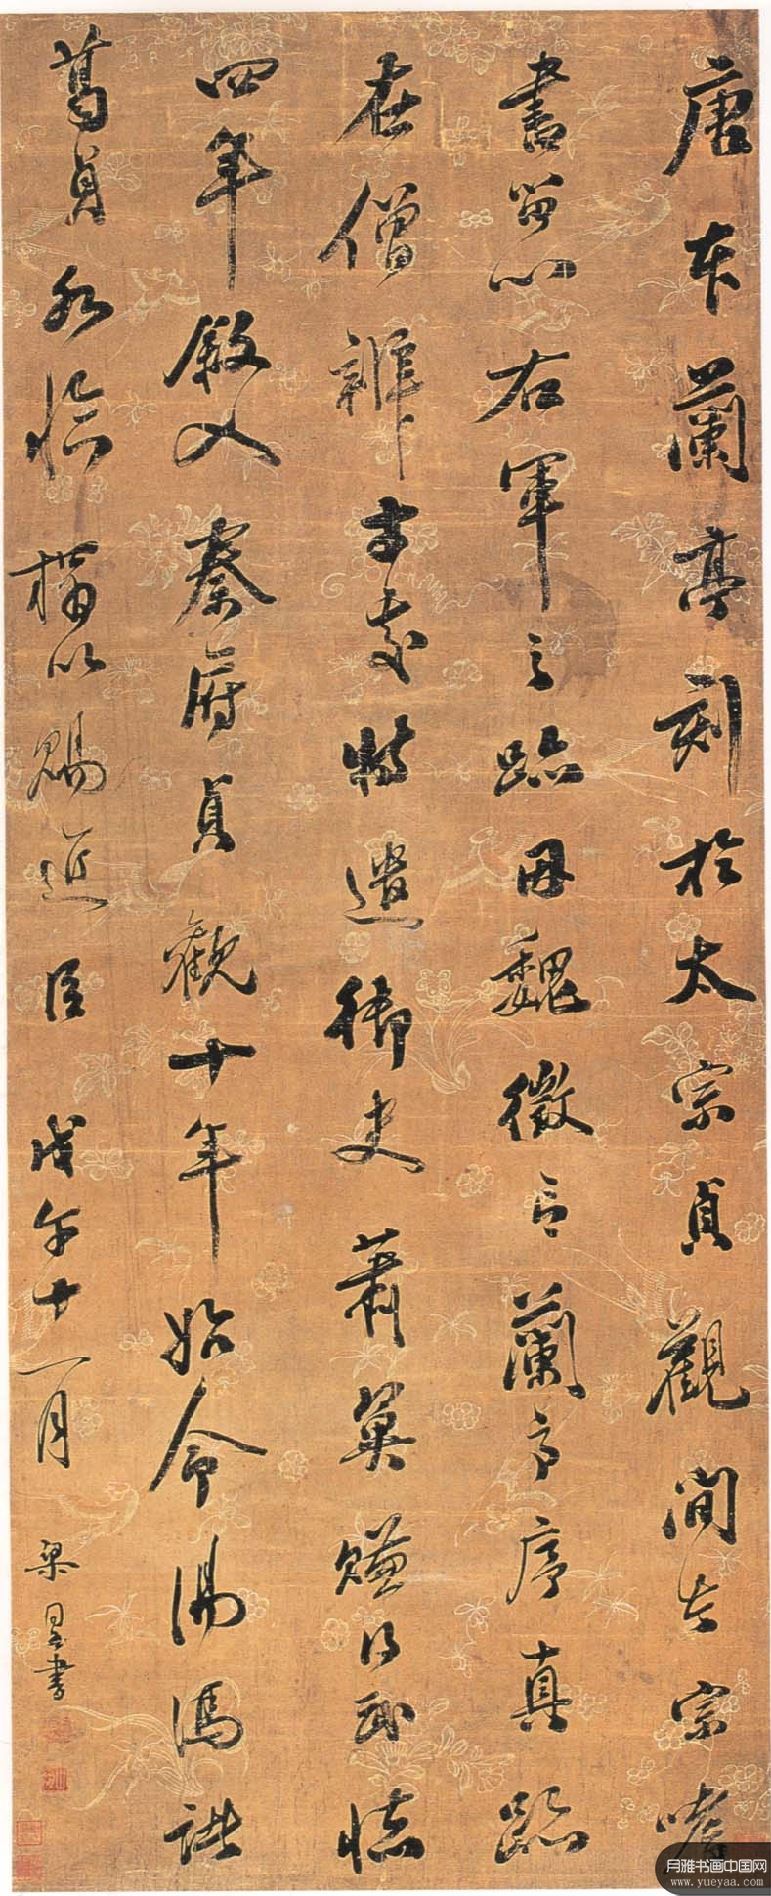 唐本蘭亭刻於太宗貞觀間太宗嗜
書留心右軍之跡因魏徵言蘭亭序真跡
在僧辨才處特遣御史蕭翼賺得武德
四年敘入秦府貞觀十年始令湯馮諸
葛貞各臨搨以賜近臣 戊午十一月 梁同書
月雅书画中国网
www.yueyaa.com